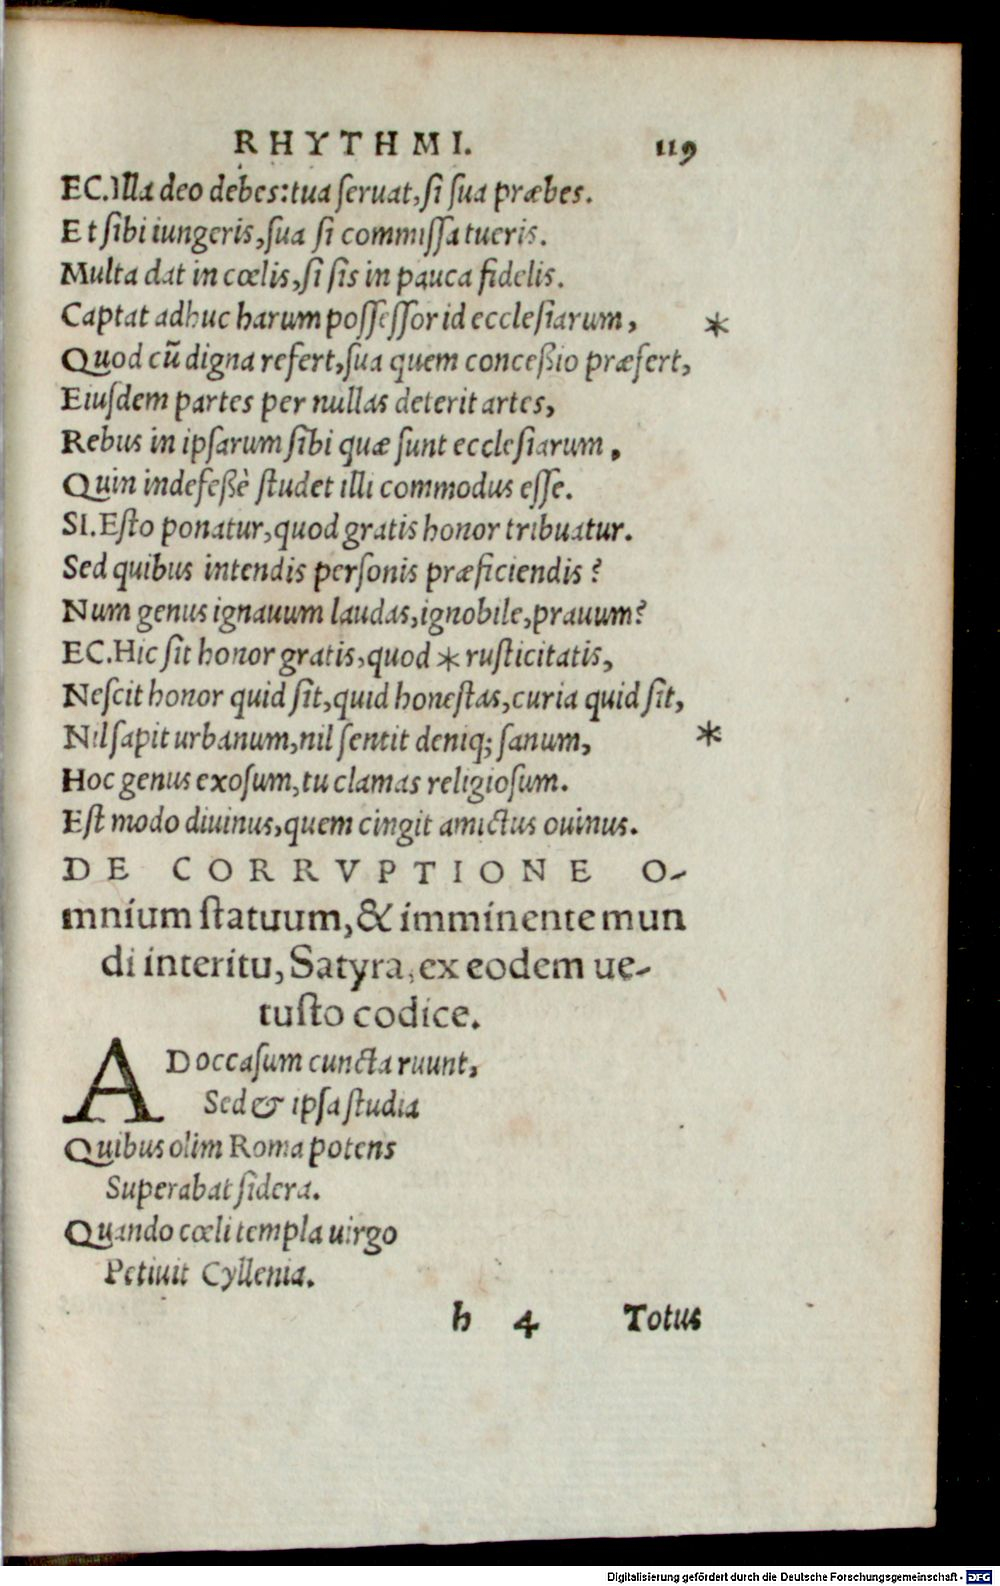 RHYTHMI. 119
EC. Illa deo debes: tua ſeruat, ſi ſua præbes.
Et ſibi iungeris, ſua ſi commiſſa tueris.
Multa dat in cœlis, ſi ſis in pauca fidelis.
Captat adhuc harum poſſeſſor id eccleſiarum, *
Quod cū digna refert, ſua quem conceßio præfert,
Eiuſdem partes per nullas deterit artes,
Rebus in ipſarum ſibi quæ ſunt eccleſiarum,
Quin indefeßè ſtudet illi commodus eſſe.
SI. Eſto ponatur, quod gratis honor tribuatur.
Sed quibus intendis perſonis præficiendis?
Num genus ignauum laudas, ignobile, prauum?
EC. Hic ſit honor gratis, quod * ruſticitatis,
Neſcit honor quid ſit, quid honeſtas, curia quid ſit,
Nil ſapit urbanum, nil ſentit deniq; ſanum, *
Hoc genus exoſum, tu clamas religioſum.
Eſt modo diuinus, quem cingit amictus ouinus.
DE CORRVPTIONE O-
mnium ſtatuum, & imminente mun
di interitu, Satyra, ex eodem ue-
tuſto codice.
AD occaſum cuncta ruunt,
Sed & ipſa ſtudia
Quibus olim Roma potens
Superabat ſidera.
Quando cœli templa uirgo
Petiuit Cyllenia.
h 4 Totus
Digitalisierung gefördert durch die Deutsche Forschungsgemeinschaft - DFG